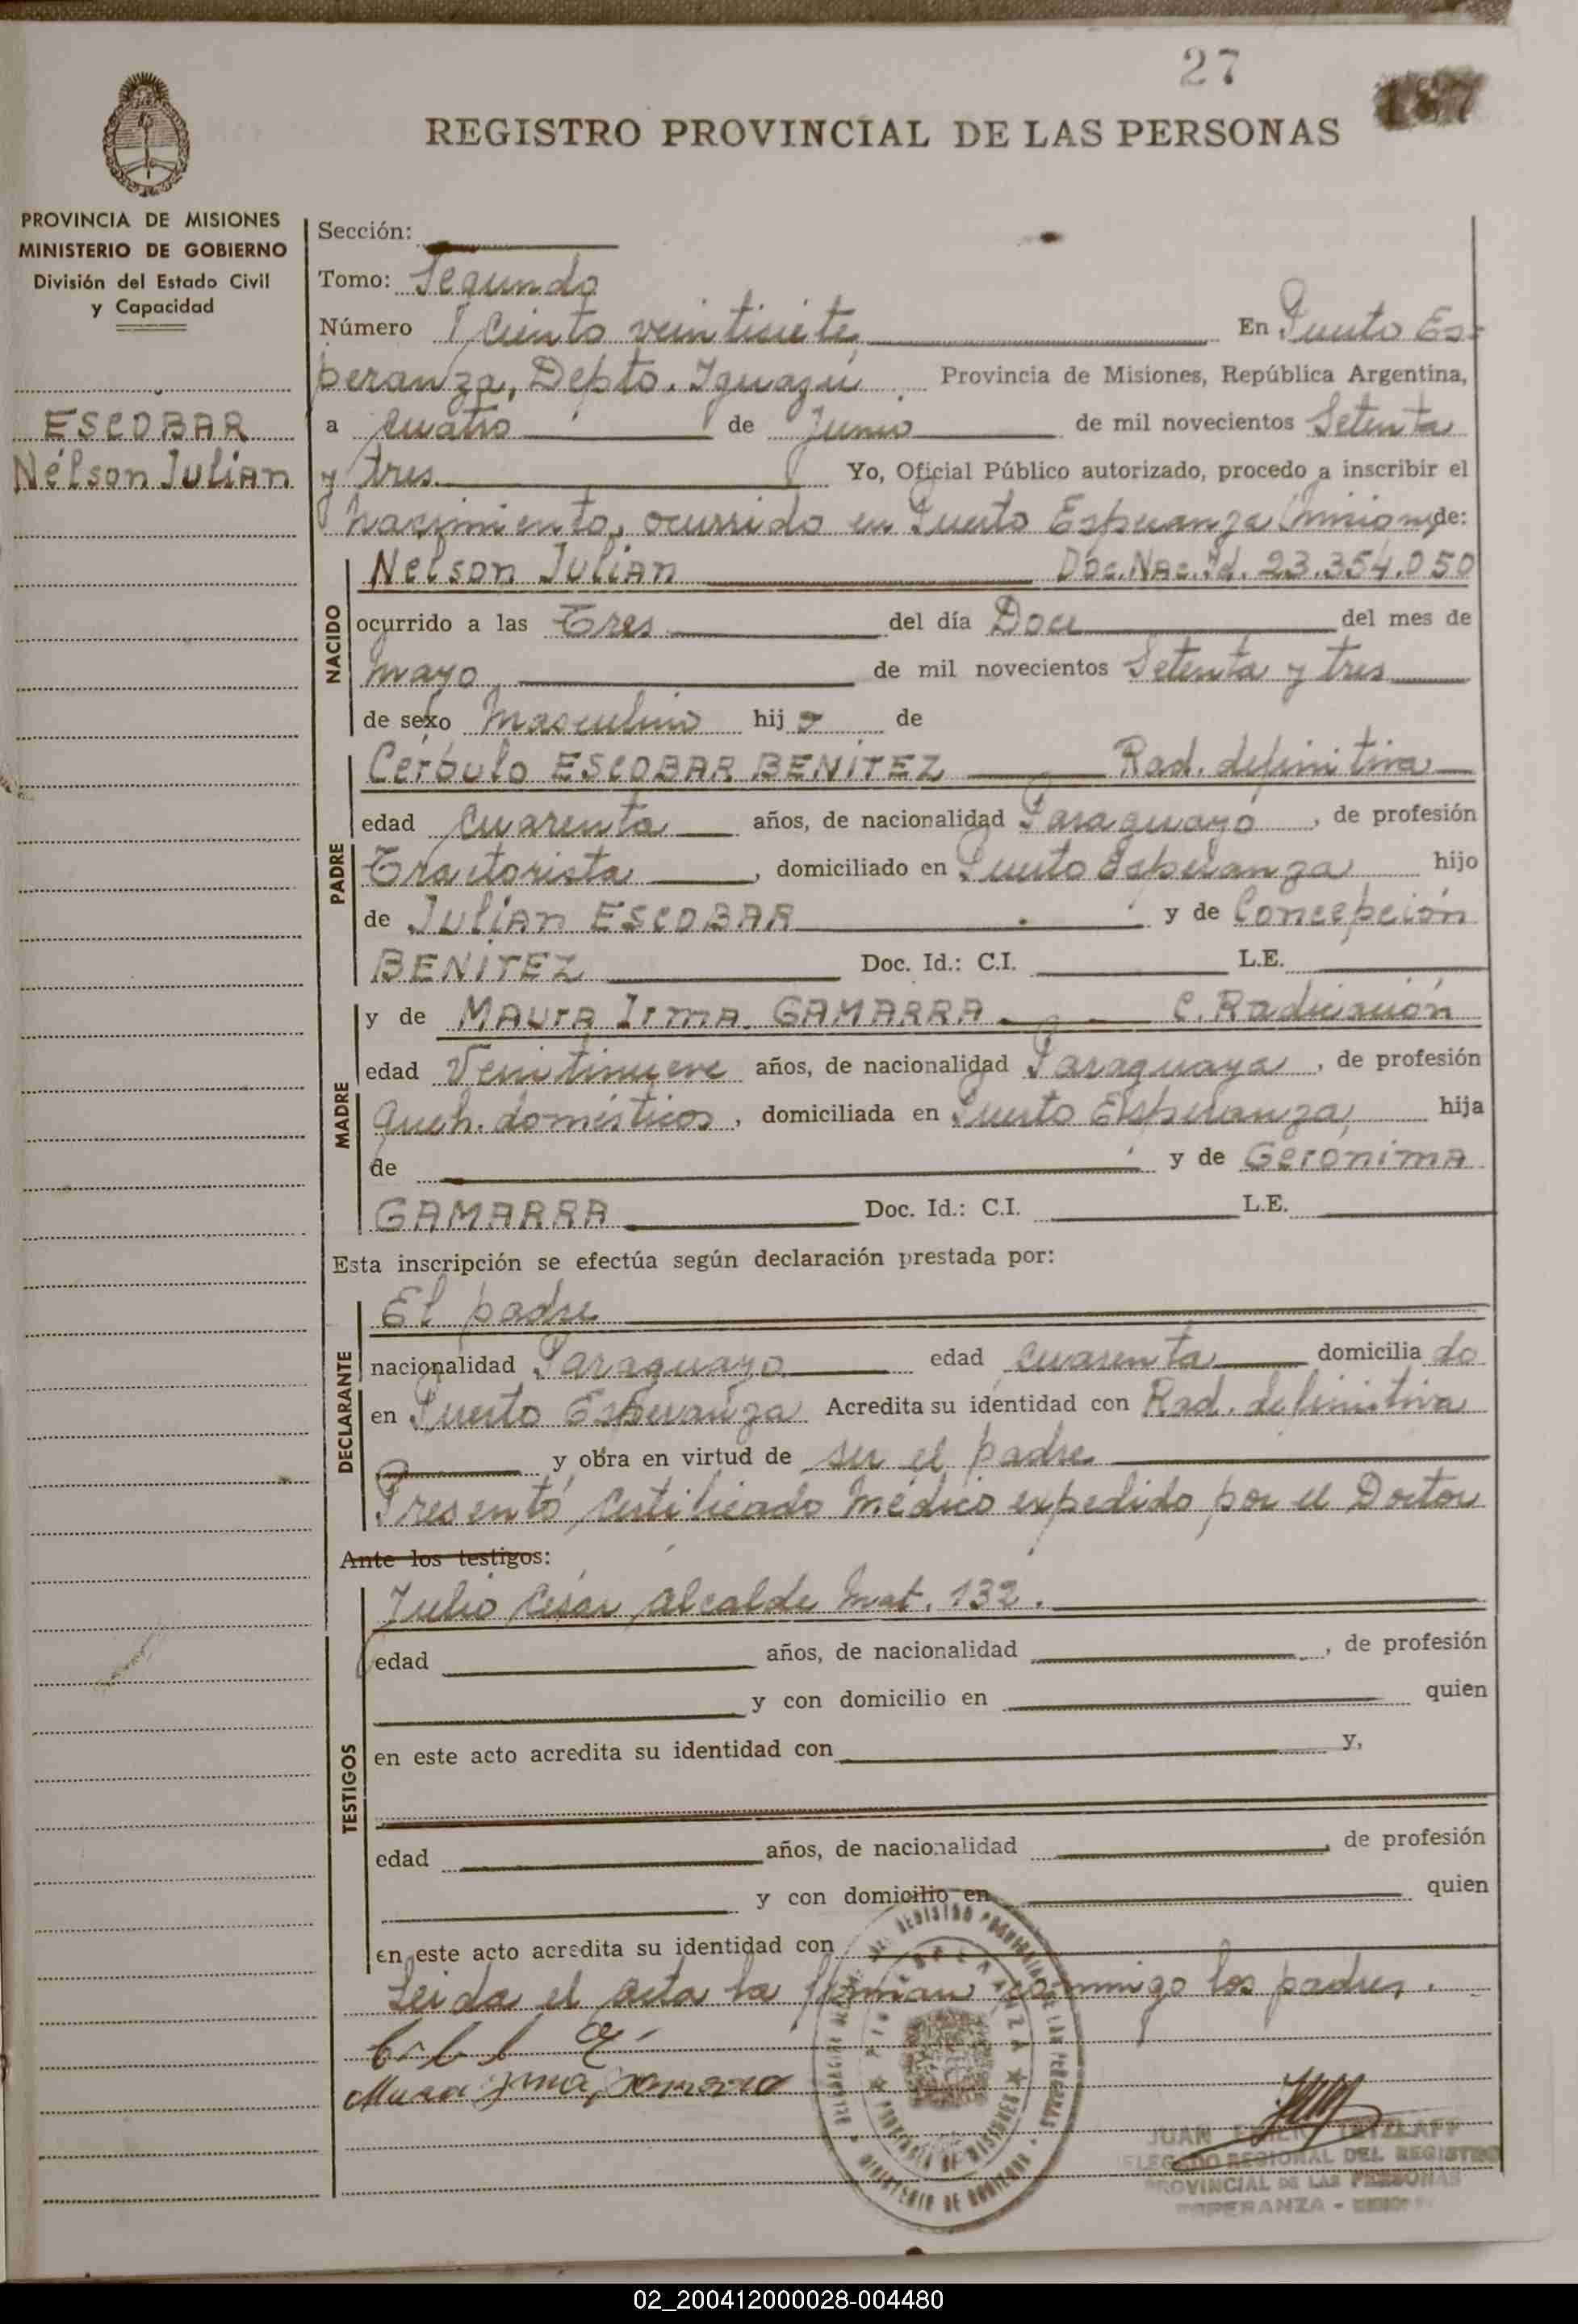 27
187
REGISTRO PROVINCIAL DE LAS PERSONAS
PROVINCIA DE MISIONES
MINISTERIO DE GOBIERNO
División del Estado Civil
y Capacidad
ESCOBAR
Nélson Julian
Sección:
Tomo: Segundo
Número ciento veintisiete En Puerto Es-
peranza, Depto. Iguazú Provincia de Misiones, República Argentina,
a cuatro de Junio de mil novecientos Setenta
y tres Yo, Oficial Público autorizado, procedo a inscribir el
nacimiento, ocurrido en Puerto Esperanza Misiones de:
NACIDO
Nelson Julian Doc. Nac. Id. 23.354.050
ocurrido a las Tres del día Doce del mes de
mayo de mil novecientos Setenta y tres
de sexo Masculino hijo de
PADRE
Cerbulo ESCOBAR BENITEZ Rad. definitiva
edad cuarenta años, de nacionalidad Paraguayo, de profesión
Tractorista, domiciliado en Puerto Esperanza hijo
de Julian ESCOBAR y de Concepción
BENITEZ Doc. Id.: C.I. L.E.
MADRE
y de Maura Irma GAMARRA C. Radicación
edad Veintinueve años, de nacionalidad Paraguaya, de profesión
Queh. domésticos, domiciliada en Puerto Esperanza, hija
de y de Gerónima
GAMARRA Doc. Id.: C.I. L.E.
Esta inscripción se efectúa según declaración prestada por:
DECLARANTE
El padre
nacionalidad Paraguayo edad cuarenta domiciliado
en Puerto Esperanza Acredita su identidad con Rad. definitiva
y obra en virtud de ser el padre
Presentó certificado médico expedido por el Doctor
Ante los testigos:
Julio César Alcalde Mat. 132.
TESTIGOS
edad años, de nacionalidad, de profesión
y con domicilio en quien
en este acto acredita su identidad con y,
edad años, de nacionalidad, de profesión
y con domicilio en quien
en este acto acredita su identidad con
Leida el acta la firman conmigo los padres.
Maura Irma Gamarra
JUAN
DELEGADO REGIONAL DEL REGISTRO
PROVINCIAL DE LAS PERSONAS
ESPERANZA - MISIONES
02_200412000028-004480